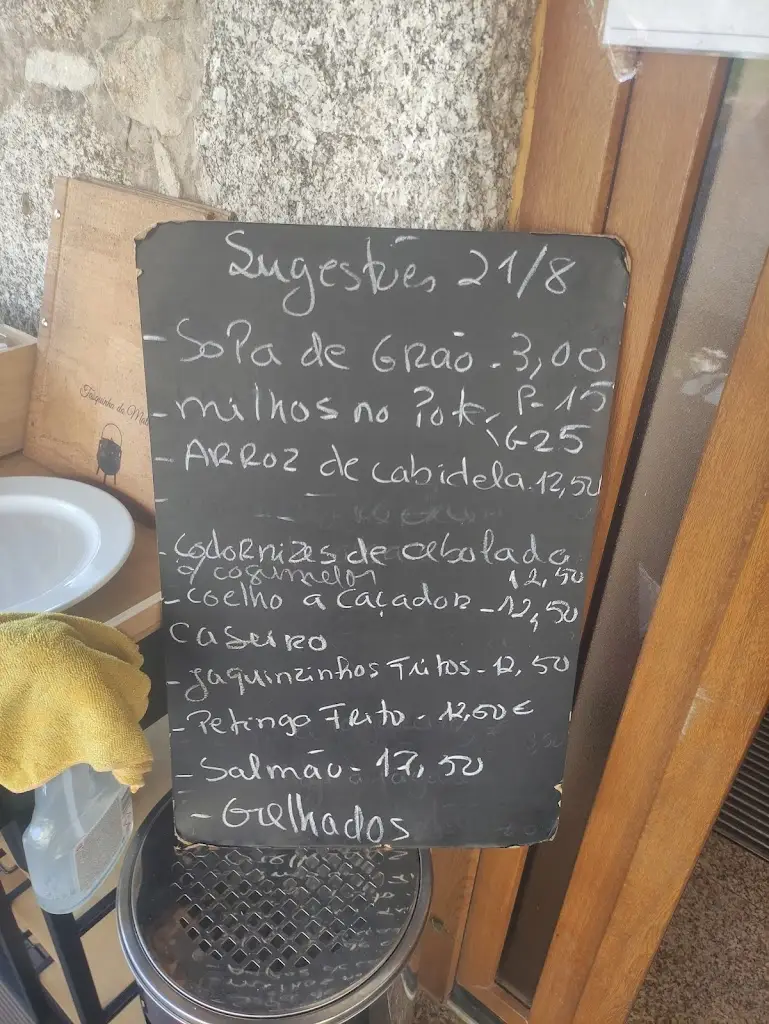 Sugestões 21/8
- Sopa de Grão - 3,00
- milhos no Pote P- 15
G 25
- ARROZ de cabidela 12,50
-
- Codornizes de cebolada
c/ cogumelos 12,50
- Coelho a caçador - 12,50
caseiro
- Jaquinzinhos Fritos - 12,50
- Petinga Frito - 12,50€
- Salmão - 17,50
- Grelhados
Tasquinha do